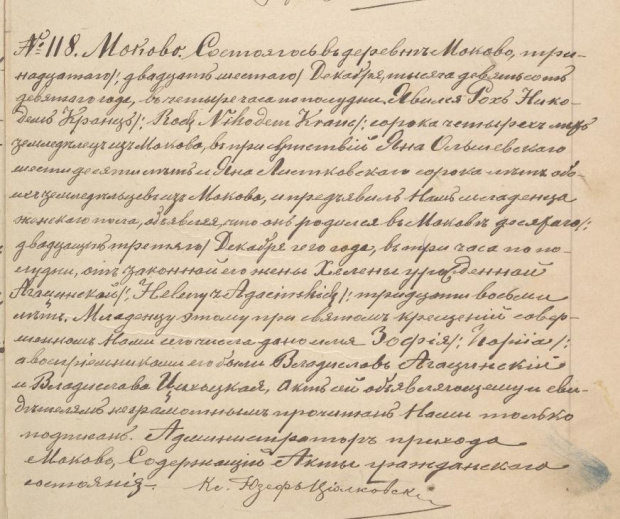 № 118. Моково. Состоялось въ деревнѣ Моково, три-
надцатаго /: двадцать шестаго / Декабря, тысяча девятьсотъ
девятаго года, въ четыре часа по полудни. Явился Рохъ Нико-
демъ Кранцъ /: Roch Nikodem Kranc / сорока четырехъ лѣтъ
земледѣлецъ изъ Моково, въ присутствіи Яна Ольшевскаго
шестидесяти лѣтъ и Яна Листковскаго сорока лѣтъ обо-
ихъ земледѣльцевъ изъ Моково, и предъявилъ Намъ младенца
женскаго пола, объявляя, что онъ родился въ Моковѣ десятаго /:
двадцать третяго / Декабря сего года, въ три часа по по-
лудни, отъ законной его жены Хелены урожденной
Агацинской /: Heleny z Agacinskich /: тридцати восьми
лѣтъ. Младенцу этому при святомъ крещеніи совер-
шенномъ Нами сего числа дано имя Зофія /: Zofiia /:
а воспріемниками его были Владиславъ Агацинскій
и Владислава Актъ сей объявляющему и сви-
дѣтелямъ неграмотнымъ прочитанъ Нами только
подписанъ. Администраторъ прихода
Моково, Содержащій Акты гражданскаго
состоянія Кс. Юзефъ Ціолковскій